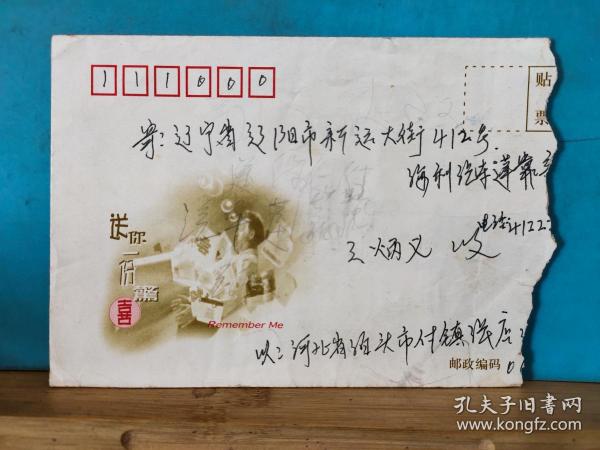 111000
贴
票
寄：辽宁省辽阳市新运大街412号.
电话：4122
王炳义 收
送你一份
喜
Remember Me
以：河北省泊头市付镇张店
邮政编码 0
孔夫子旧书网
www.kongfz.com